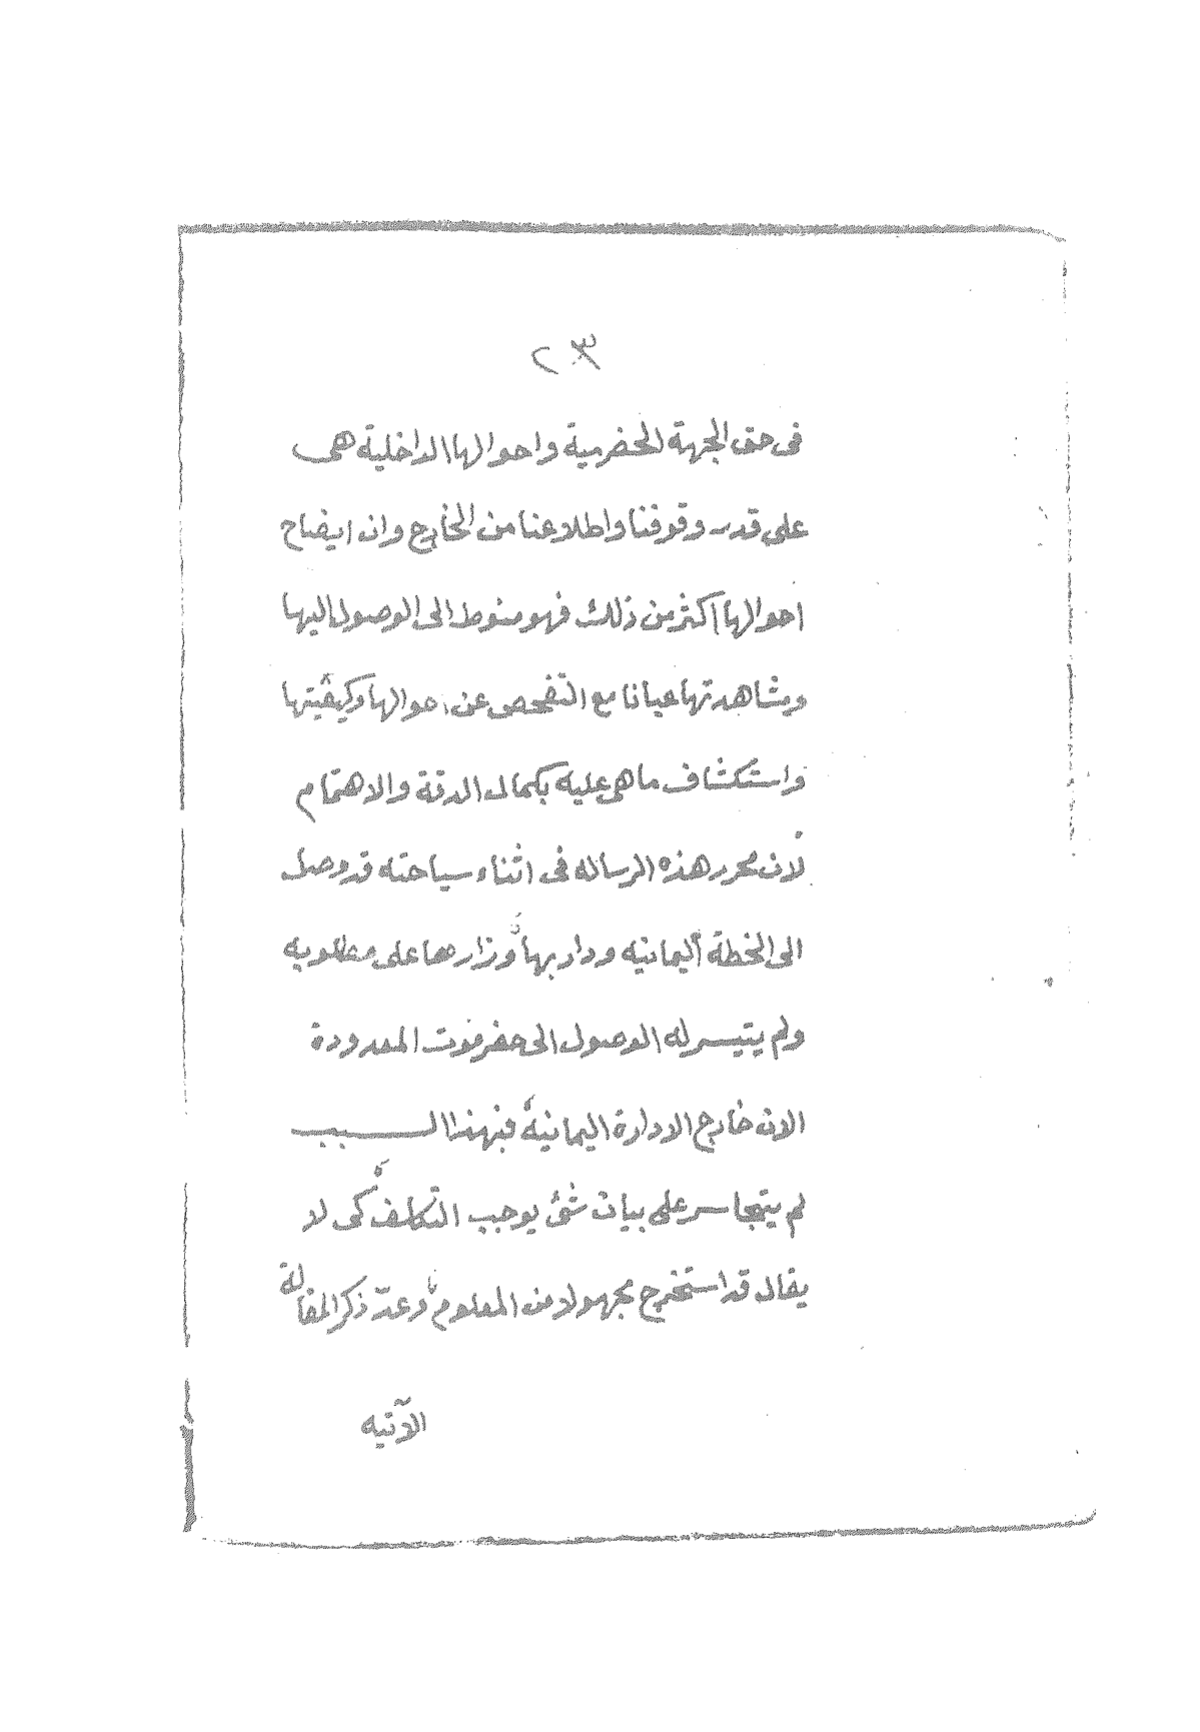 ٢٣
فى حق الجهة الحضرمية واحوالها الداخلية هى
على قدر وقوفنا واطلاعنا من الخارج وان ايضاح
احوالها اكثر من ذلك فهو منوط الى الوصول اليها
ومشاهدتها عيانا مع التفحص عن احوالها وكيفيتها
واستكشاف ماهى عليه بكمال الدقة والاهتمام
لان محرر هذه الرساله فى اثناء سياحته قد وصل
الى الخطة اليمانيه ودار بها وزارها على مطلوبه
ولم يتيسر له الوصول الى حضرموت المعدودة
الان خارج الادارة اليمانية فبهذا السبب
لم يتجاسر على بيان شئ يوجب التكلف كى لا
يقال قد استخرج مجهولا من المعلوم وعدّ ذكر المقالة
الآتيه